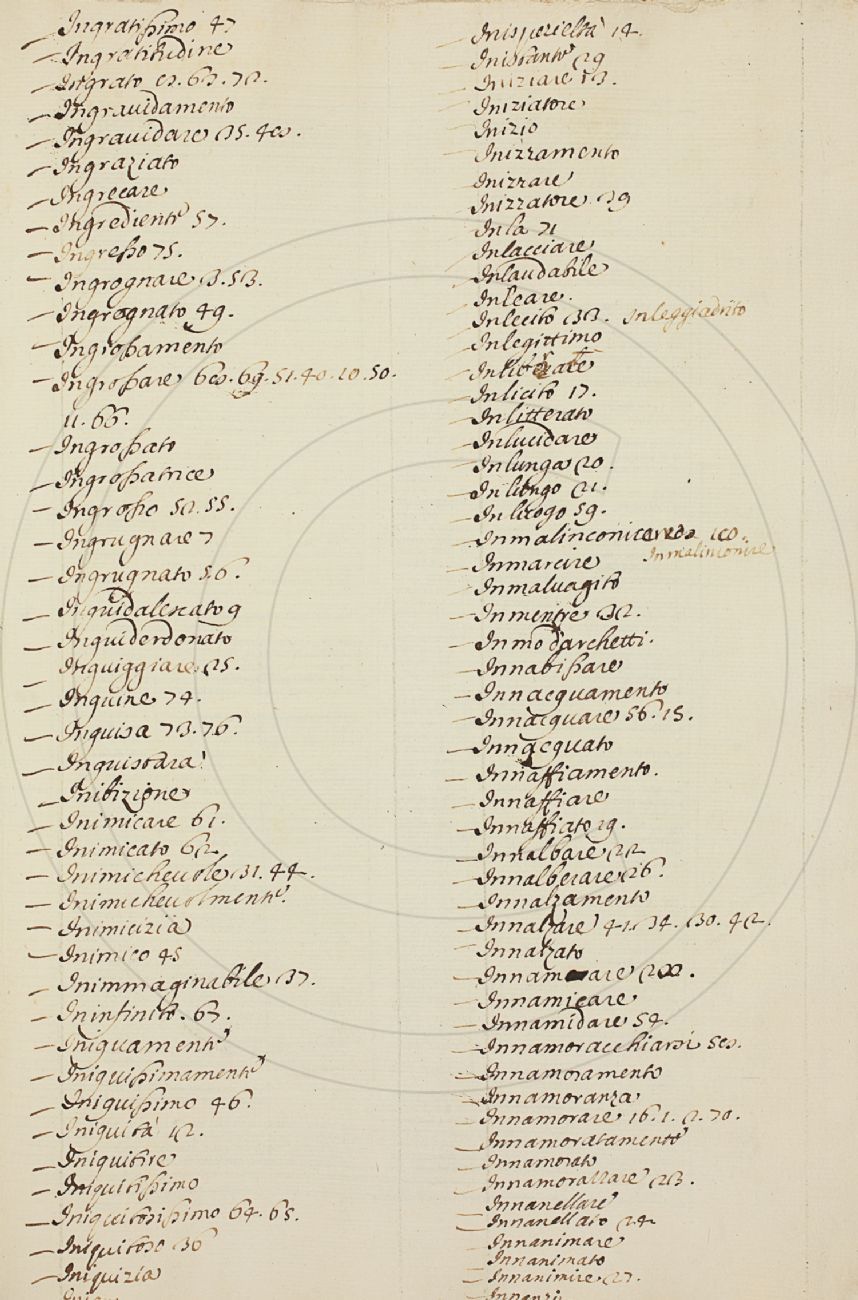 Ingratissimo 47
Ingratitudine
Ingrato
Ingravidamento
Ingravidare
Ingraziato
Ingrecare
Ingredienti 57.
Ingresso 75.
Ingrognare 3. 53.
Ingrognato 49.
Ingrossamento
Ingrossare 51. 40. 10. 50.
11. 66.
Ingrossato
Ingrossatrice
Ingrosso 52. 55.
Ingrugnare 7
Ingrugnato 56.
Inguidalescato 9
Inguiderdonato
Inguiggiare 25.
Inguine 74.
Inguisa 73. 76.
Inguistara
Inibizione
Inimicare 61.
Inimicato 62
Inimichevole 31. 44.
Inimichevolmente
Inimicizia
Inimico 45
Inimmaginabile 37.
Ininfinito. 67.
Iniquamente
Iniquissimamente
Iniquissimo 46.
Iniquità 12.
Iniquitire
Iniquitissimo
Iniquitosissimo 64. 65.
Iniquitoso 36
Iniquizia
Inisperieltà 14.
Inistante 29
Iniziare 13.
Iniziatore
Inizio
Inizzamento
Inizzare
Inizzatore 39
In la 71
Inlacciare
Inlaudabile
Inleare.
Inlecito 33. Inleggiadrito
Inlegittimo
Inlicito 17.
Inlitterato
Inlucidare
Inlunga 20.
In lungo 21.
In luogo 59.
Inmalinconicare
Inmalinconire
Inmarcire
Inmalvagito
Inmentre 32.
Inmo d'archetti.
Innabissare
Innacquamento
Innacquare 56. 15.
Innacquato
Innaffiamento.
Innaffiare
Innaffiato 19.
Innalbare 22
Innalberare 26.
Innalzamento
Innalzare 41. 34. 30. 42.
Innalzato
Innamicare
Innamidare 54.
Innamoracchiarsi
Innamoramento
Innamoranza
Innamorare 16. 1. 2. 70.
Innamoratamente
Innamorato
Innamorazzare 23.
Innanellare
Innanellato 24
Innanimare
Innanimato
Innanimire 27.
Innanzi